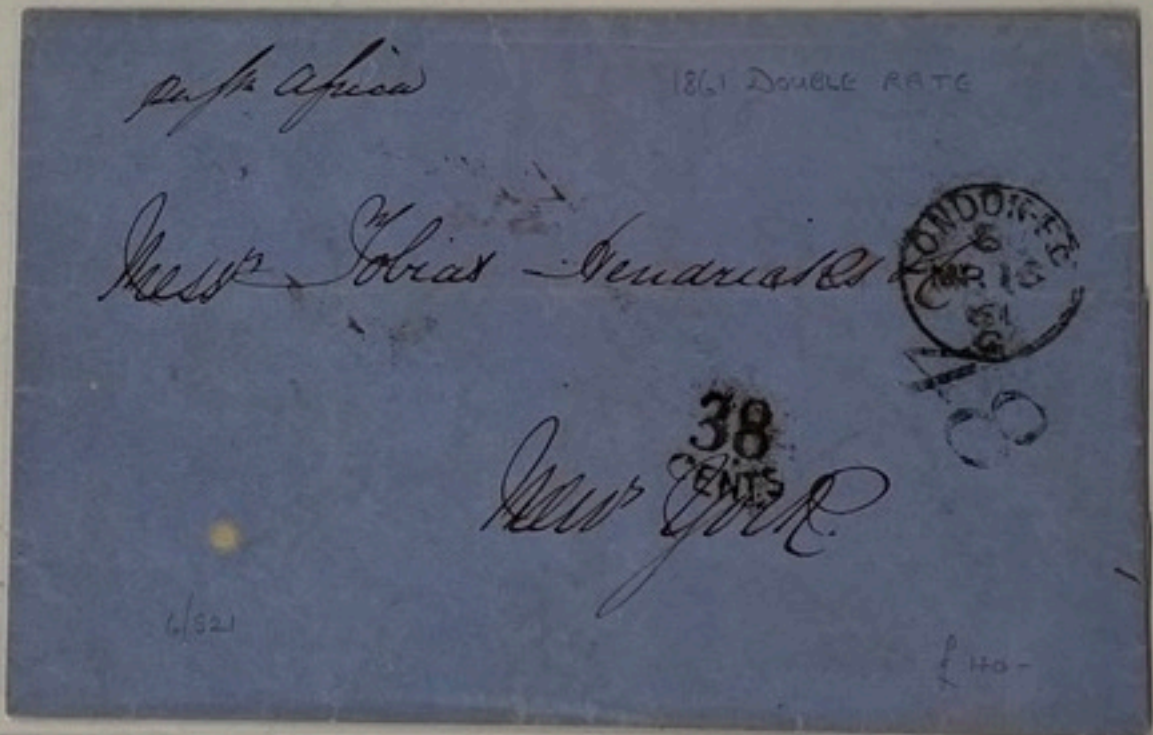 Africa
1861 DOUBLE RATE
Messrs Tobias Hendricks & Co
LONDON-E.C
6
MR 16
61
38
CENTS
48
New York.
6/521
£ 40-